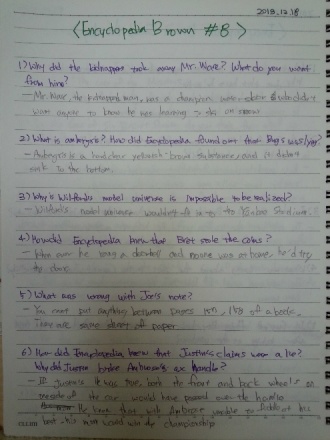 2018.12.18
<Encyclopedia Brown #8>
1) Why did the kidnappers took away Mr. Ware? What do you want
from him?
- Mr. Ware, the kidnapped man, was a champion water skier & who didn't
want anyone to know he was learning to ski on snow
2) What is ambergris? How did Encyclopedia found out that Bugs was lying?
- Ambergris is a
sink to the bottom.
3) Why is Wilford's model universe is impossible to be realized?
- Wilford's model universe wouldn't fit in to the Stadium.
4) How did Encyclopedia knew that Bret stole the coins?
- When ever he rang a doorbell and no one was at home, he'd try
the door.
5) What was wrong with Joe's note?
- You can't put anything between pages 157, 158 of a book.
There are same sheet of paper
6) How did Encyclopedia knew that Justin's claims was a lie?
Why did Justin broke Ambrose's ax handle?
- If Justin's it was true, both the front and back wheels
of the car would have passed over the handle
He knew that with Ambrose unable to
best - his man would win the championship